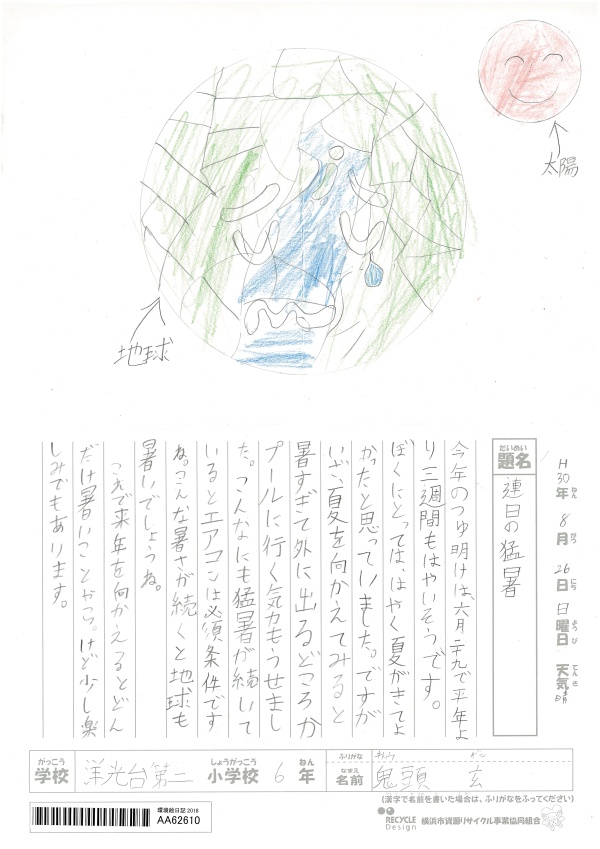 太陽
地球
H30年 8月 26日 日曜日 天気 晴
ねん がつ にち ようび てんき
だいめい
題名
連日の猛暑
今年のつゆ明けは、六月二十九で平年よ
り三週間もはやいそうです。
ぼくにとっては、はやく夏がきてよ
かったと思っていました。ですが
いざ、夏を向かえてみると
暑すぎて外に出るどころか
プールに行く気力もうせまし
た。こんなにも猛暑が続いて
いるとエアコンは必須条件です
ね。こんな暑さが続くと地球も
暑いでしょうね。
これで来年を向かえるとどん
だけ暑いことやら。けど少し楽
しみでもあります。
がっこう
学校
洋光台第二
しょうがっこう
小学校
6
ねん
年
ふりがな
なまえ
名前
鬼頭 玄
(漢字で名前を書いた場合は、ふりがなをふってください)
環境絵日記 2018
AA62610
RECYCLE
Design
横浜市資源リサイクル事業協同組合